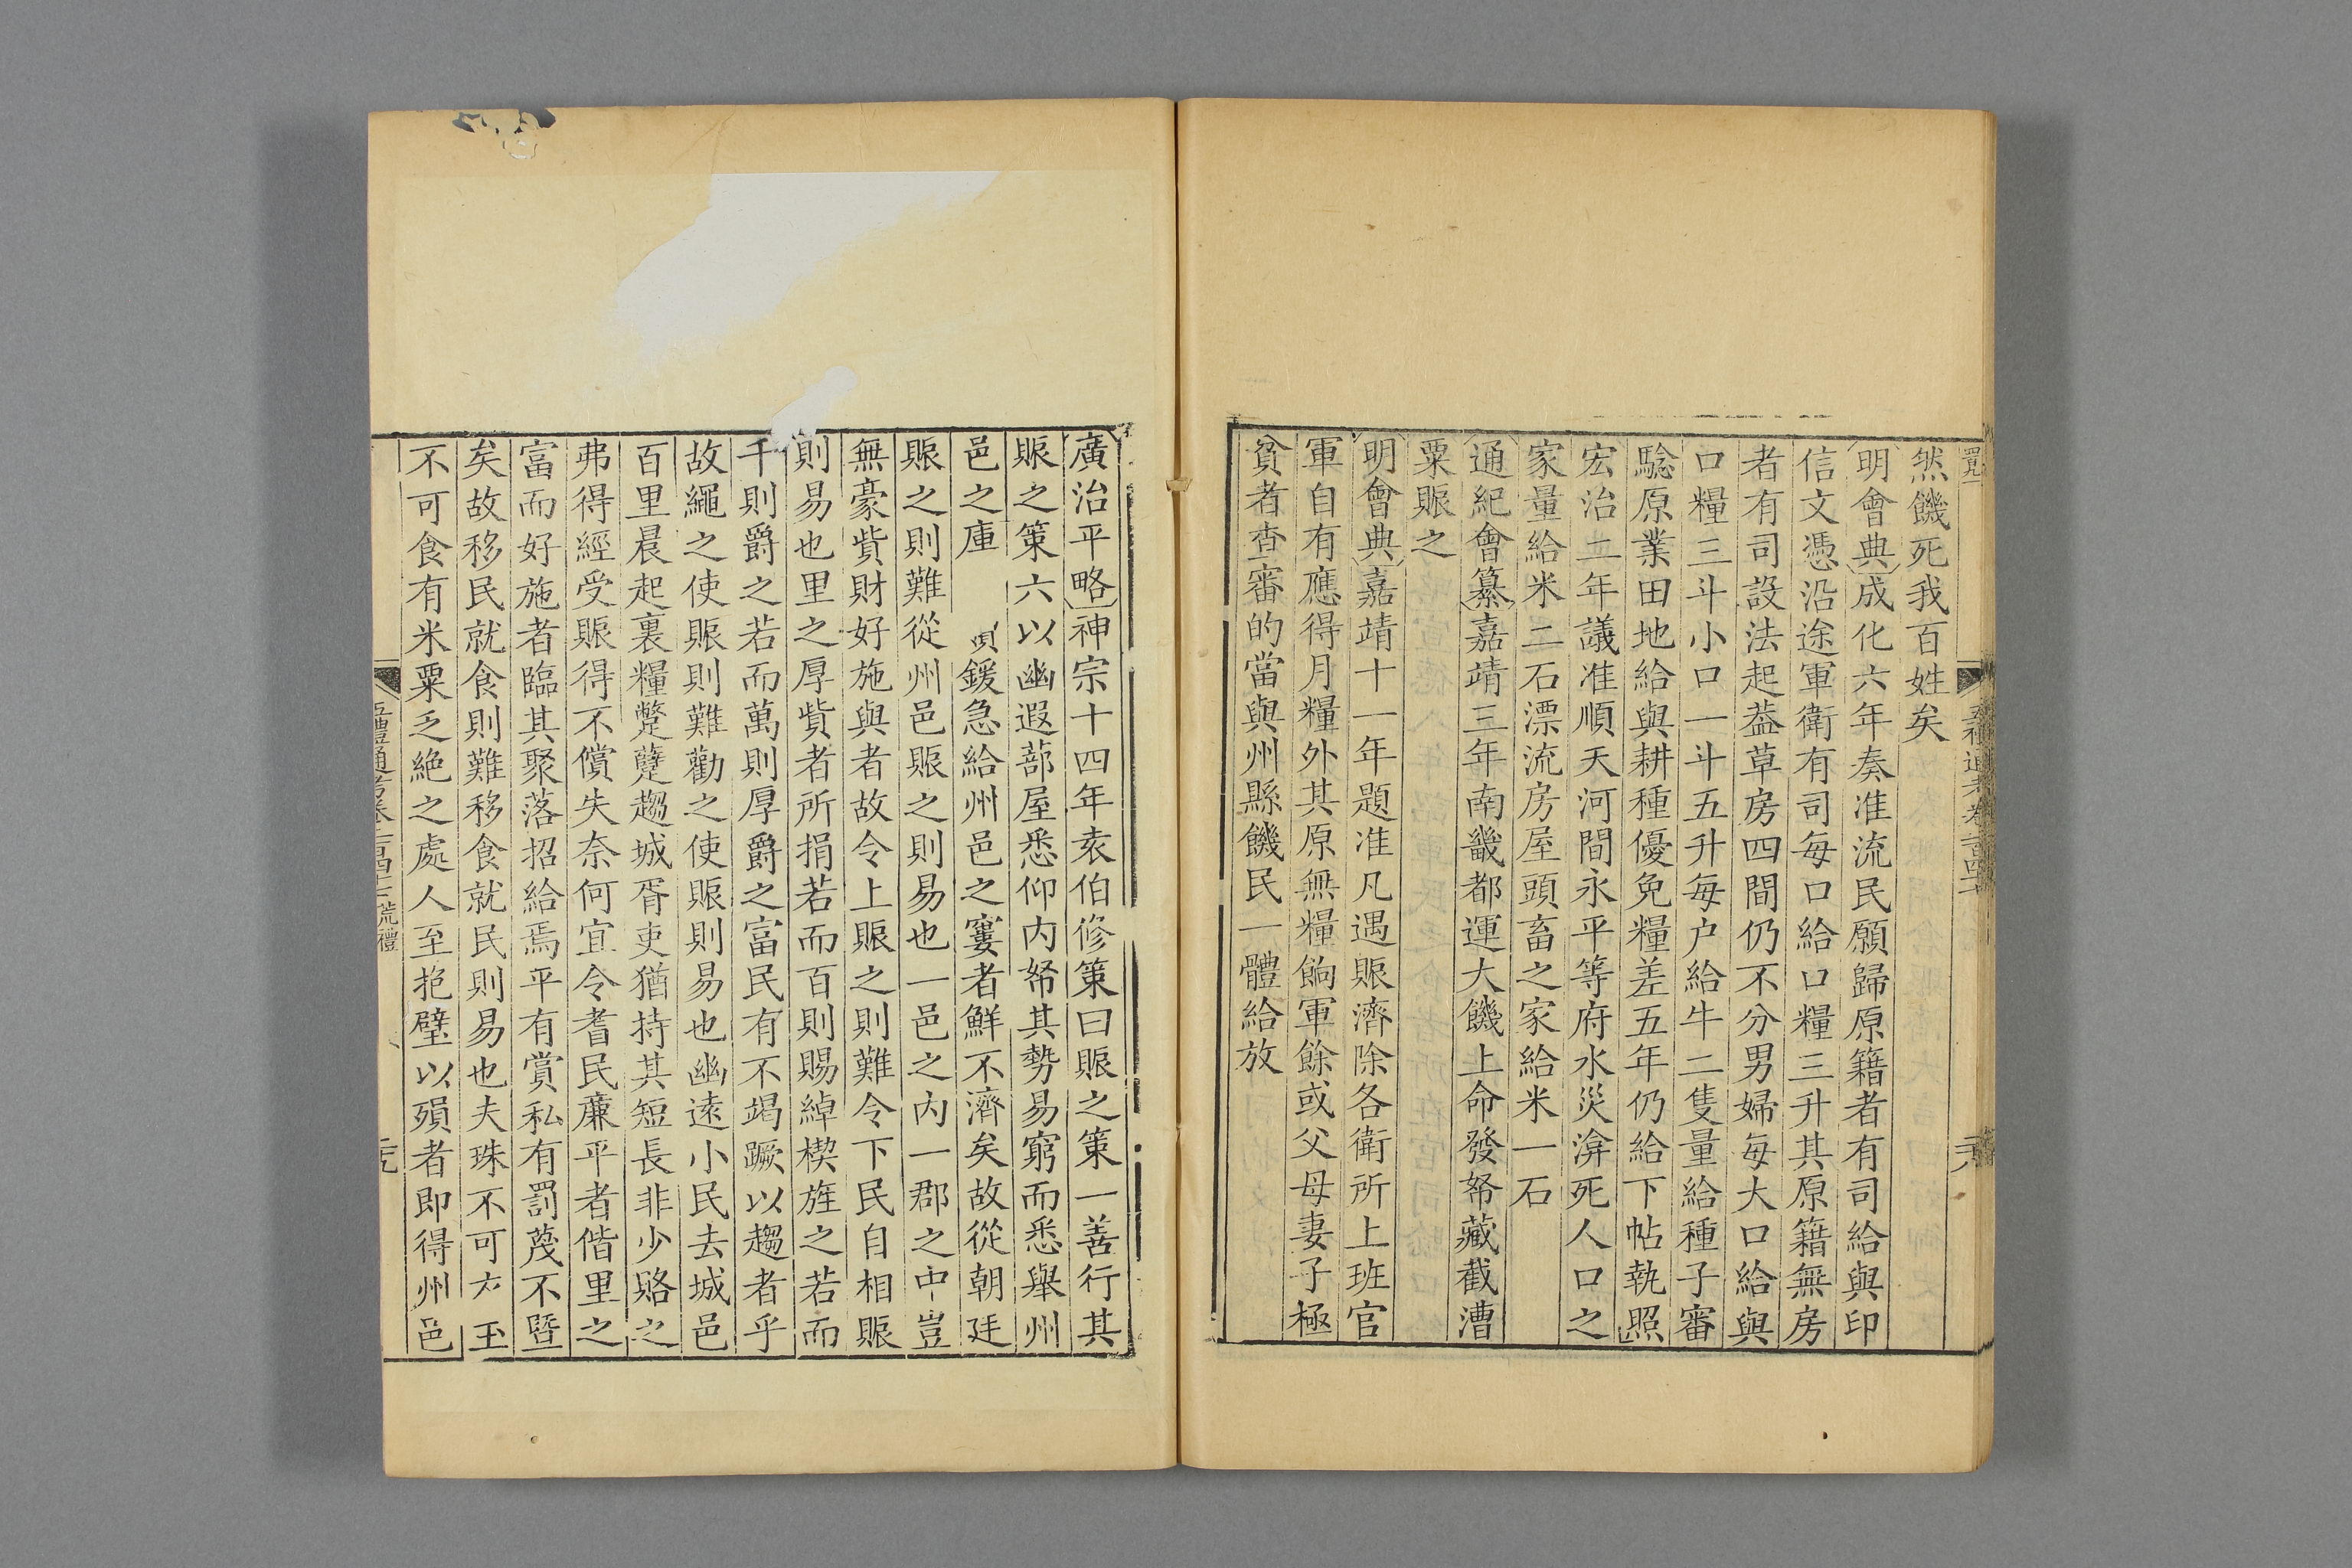 然饑死我百姓矣
明會典成化六年奏准流民願歸原籍者有司給與印
信文憑沿途軍衛有司每口給口糧三升其原籍無房
者有司設法起葢草房四間仍不分男婦每大口給與
口糧三斗小口一斗五升每户給牛二隻量給種子審
騐原業田地給與耕種優免糧差五年仍給下帖執照
宏治二年議准順天河間永平等府水災渰死人口之
家量給米二石漂流房屋頭畜之家給米一石
通紀會纂嘉靖三年南畿都運大饑上命發帑藏截漕
粟賑之
明會典嘉靖十一年題准凡遇賑濟除各衛所上班官
軍自有應得月糧外其原無糧餉軍餘或父母妻子極
貧者查審的當與州縣饑民一體給放
廣治平略神宗十四年袁伯修策曰賑之策一善行其
賑之策六以幽遐蔀屋悉仰内帑其勢易窮而悉舉州
邑之庫鍰急給州邑之窶者鮮不濟矣故從朝廷
賑之則難從州邑賑之則易也一邑之内一郡之中豈
無豪貲財好施與者故令上賑之則難令下民自相賑
則易也里之厚貲者所捐若而百則賜綽楔旌之若而
千則爵之若而萬則厚爵之富民有不竭蹶以趨者乎
故繩之使賑則難勸之使賑則易也幽遠小民去城邑
百里晨起裹糧蹩躠趨城胥吏猶持其短長非少賂之
弗得經受賑得不償失奈何宜令耆民亷平者偕里之
富而好施者臨其聚落招給焉平有賞私有罰蔑不暨
矣故移民就食則難移食就民則易也夫珠不可 玉
不可食有米粟乏絶之處人至抱璧以殞者即得州邑